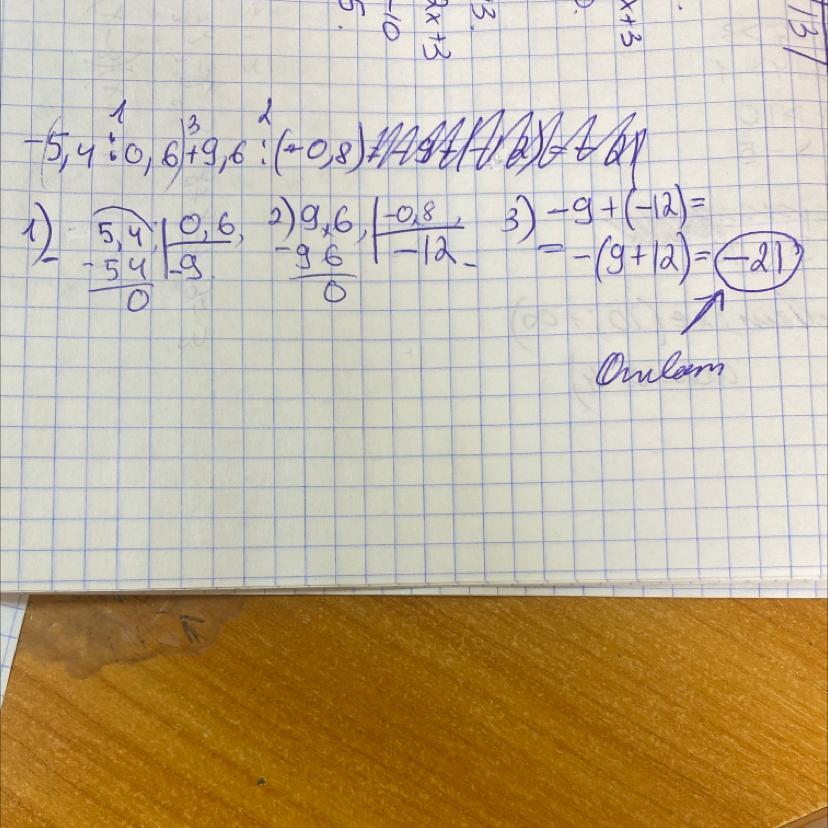 x+3
2x+3
-10
-(5,4:0,6)+9,6:(-0,8)
1 3 2
1) 5,4 | 0,6
-54 | -9
0
2) 9,6 | -0,8
-96 | -12
0
3) -9+(-12)=
=-(9+12)=-21
Ответ